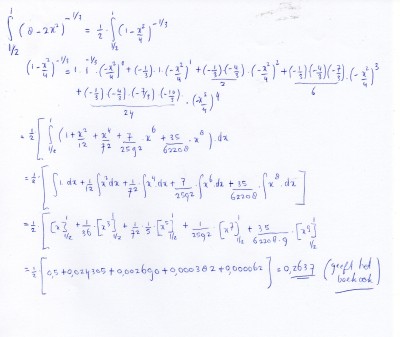 ∫_{1/2}^{1} (8-2x²)^{-1/3} = 1/2 · ∫_{1/2}^{1} (1-x²/4)^{-1/3}
(1-x²/4)^{-1/3} = 1·1^{-1/3}·(-x²/4)^0 + (-1/3)·1·(-x²/4)^1 + (-1/3)(-4/3)/2 · (-x²/4)² + (-1/3)(-4/3)(-7/3)/6 · (-x²/4)³
+ (-1/3)·(-4/3)·(-7/3)·(-10/3)/24 · (-x²/4)^4
= 1/2 [ ∫_{1/2}^{1} (1 + x²/12 + x⁴/72 + 7/2592 · x⁶ + 35/62208 · x⁸) · dx
= 1/2 · [ ∫ 1 · dx + 1/12 ∫ x² dx + 1/72 ∫ x⁴ dx + 7/2592 ∫ x⁶ dx + 35/62208 · ∫ x⁸ · dx ]
= 1/2 [ [x]_{1/2}^{1} + 1/36 · [x³]_{1/2}^{1} + 1/72 · 1/5 [x⁵]_{1/2}^{1} + 1/2592 · [x⁷]_{1/2}^{1} + 35/62208·9 · [x⁹]_{1/2}^{1}
= 1/2 · [ 0,5 + 0,024305 + 0,002690 + 0,000382 + 0,000062 ] = 0,2637 (geeft het boek ook)